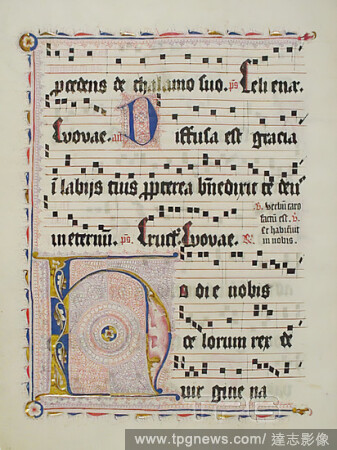 pcedens de thalamo suo. ps Celi enar.
Evovae. añ Diffusa est gracia
ī labijs tuis ꝓpterea bn̄edixit te deꝰ
in eternū. ps. Eruct. Evovae. R.
V. Verbū caro
factū est. V.
et habitavit
in nobis.
Hodie nobis
ce lorum rex de
vir gine na
www.tpgnews.com/ 達志影像